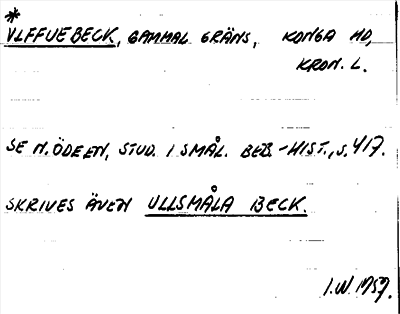 *
VLFFUEBECK, GAMMAL GRÄNS, KONGA HD,
KRON. L.
SE N. ÖDEEN, STUD. I SMÅL. BEB.-HIST., S. 417.
SKRIVES ÄVEN ULLSMÅLA BECK.
I.W. 1957.